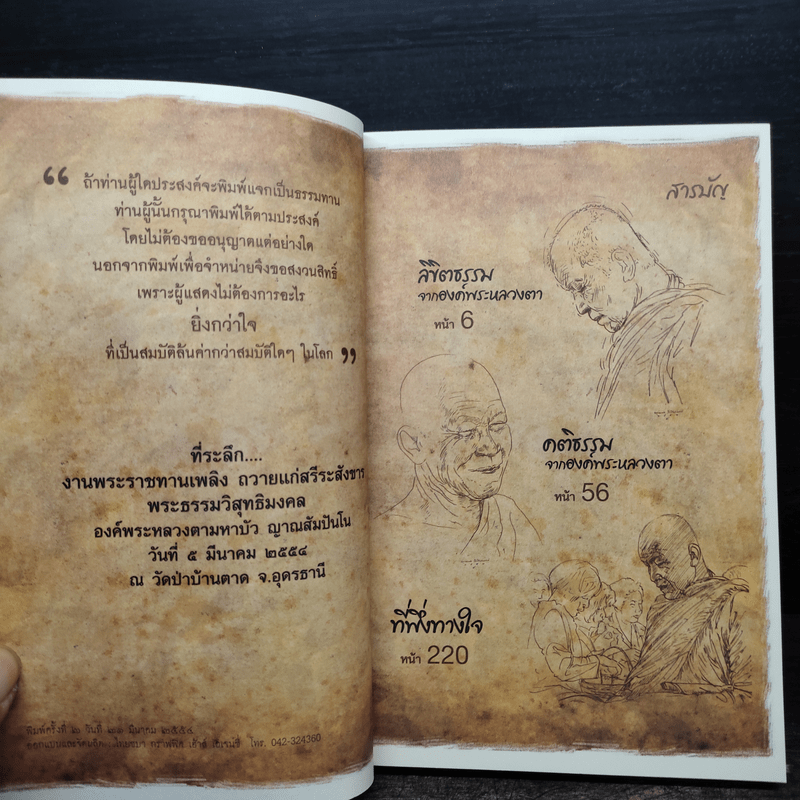 “ ถ้าท่านผู้ใดประสงค์จะพิมพ์แจกเป็นธรรมทาน
ท่านผู้นั้นกรุณาพิมพ์ได้ตามประสงค์
โดยไม่ต้องขออนุญาตแต่อย่างใด
นอกจากพิมพ์เพื่อจำหน่ายจึงขอสงวนสิทธิ์
เพราะผู้แสดงไม่ต้องการอะไร
ยิ่งกว่าใจ
ที่เป็นสมบัติล้นค่ากว่าสมบัติใดๆ ในโลก ”
ที่ระลึก....
งานพระราชทานเพลิง ถวายแก่สรีระสังขาร
พระธรรมวิสุทธิมงคล
องค์พระหลวงตามหาบัว ญาณสัมปันโน
วันที่ ๕ มีนาคม ๒๕๕๔
ณ วัดป่าบ้านตาด จ.อุดรธานี
พิมพ์ครั้งที่ ๒ วันที่ มีนาคม ๒๕๕๔
โทร. 042-324360
สารบัญ
ลิขิตธรรม
จากองค์พระหลวงตา
หน้า 6
คติธรรม
จากองค์พระหลวงตา
หน้า 56
ที่พึ่งทางใจ
หน้า 220